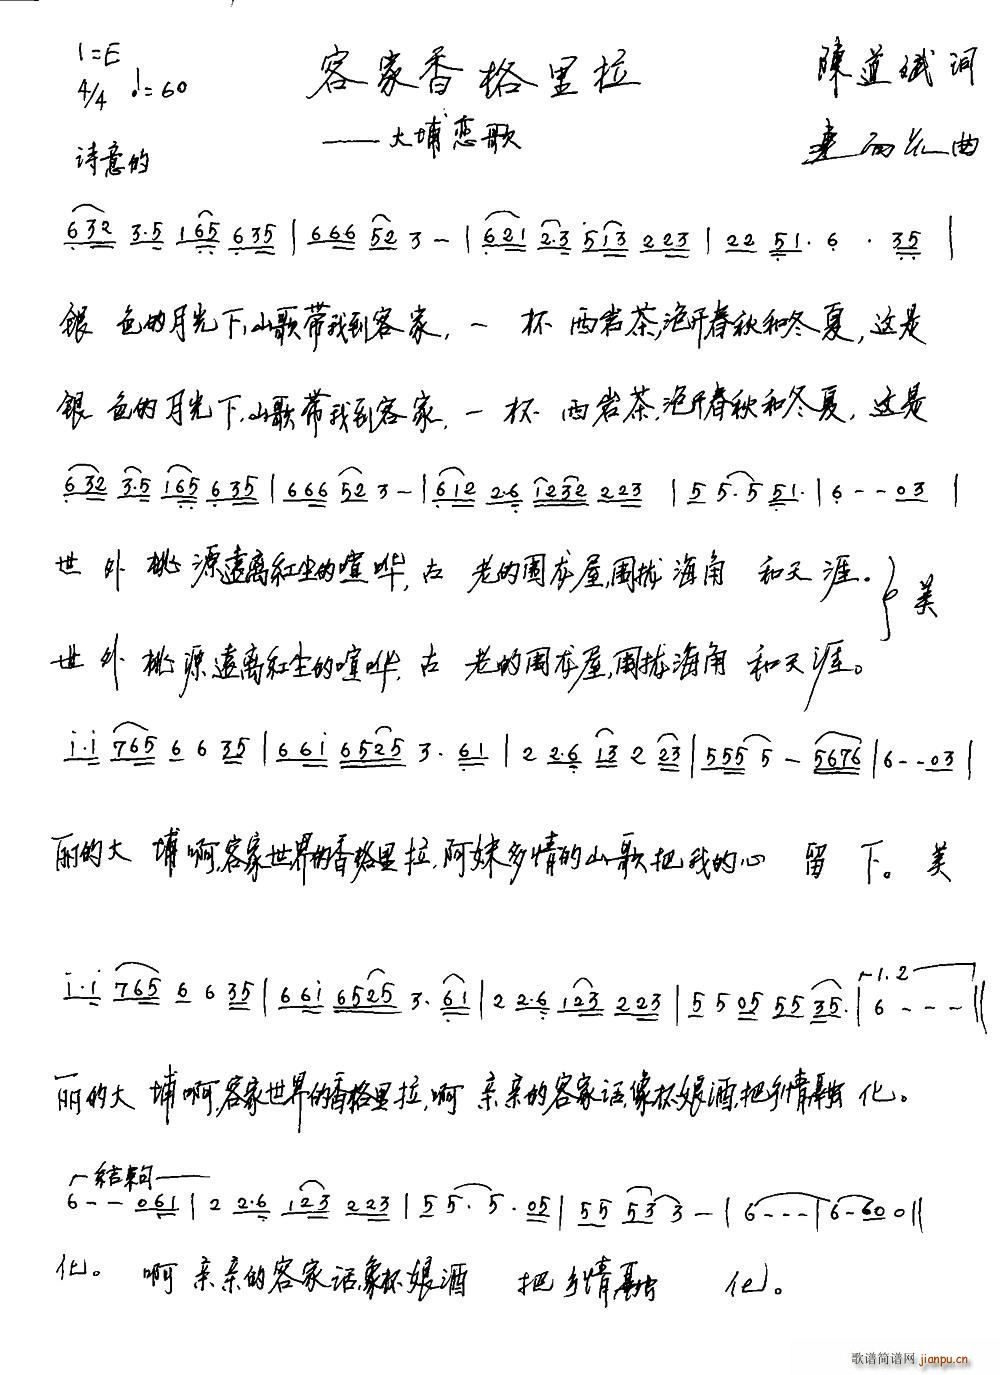 1=E
客家香格里拉
陳道斌 词
4/4 ♩=60
——大埔恋歌
曲
诗意的
6 3 2 3·5 1 6 5 6 3 5 | 6 6 6 5 2 3 – | 6 2 1 2·3 5 1 3 2 2 3 | 2 2 5 1· 6 · 3 5 |
銀 色的月光下,山歌带我到客家,一 杯 西岩茶,泡开春秋和冬夏,这是
銀 色的月光下,山歌带我到客家,一 杯 西岩茶,泡开春秋和冬夏,这是
6 3 2 3·5 1 6 5 6 3 5 | 6 6 6 5 2 3 – | 6 1 2 2·6 1 2 3 2 2 2 3 | 5 5·5 5 1· | 6 - - 0 3 |
世 外 桃 源遠离紅尘的喧哗,古 老的围龙屋,围拢海角 和天涯. } 美
世 外 桃 源遠离紅尘的喧哗,古 老的围龙屋,围拢海角 和天涯。
i·i 7 6 5 6 6 3 5 | 6 6 i 6 5 2 5 3· 6 1 | 2 2·6 1 3 2 2 3 | 5 5 5 5 – 5 6 7 6 | 6 - - 0 3 |
丽的大 埔啊,客家世界的香格里拉,阿妹多情的山歌把我的心 留 下。 美
i·i 7 6 5 6 6 3 5 | 6 6 i 6 5 2 5 3· 6 1 | 2 2·6 1 2 3 2 2 3 | 5 5 0 5 5 5 3 5· | 1.2 6 - - - ||
丽的大 埔啊,客家世界的香格里拉,啊 亲亲的客家话,像杯娘酒,把乡情融 化。
结束句
6 - - 0 6 1 | 2 2·6 1 2 3 2 2 3 | 5 5· 5· 0 5 | 5 5 5 3 3 – | 6 - - - | 6 - 6 0 0 ||
化。 啊 亲亲的客家话,象杯娘酒 把乡情融 化。
歌谱简谱网
jianpu.cn